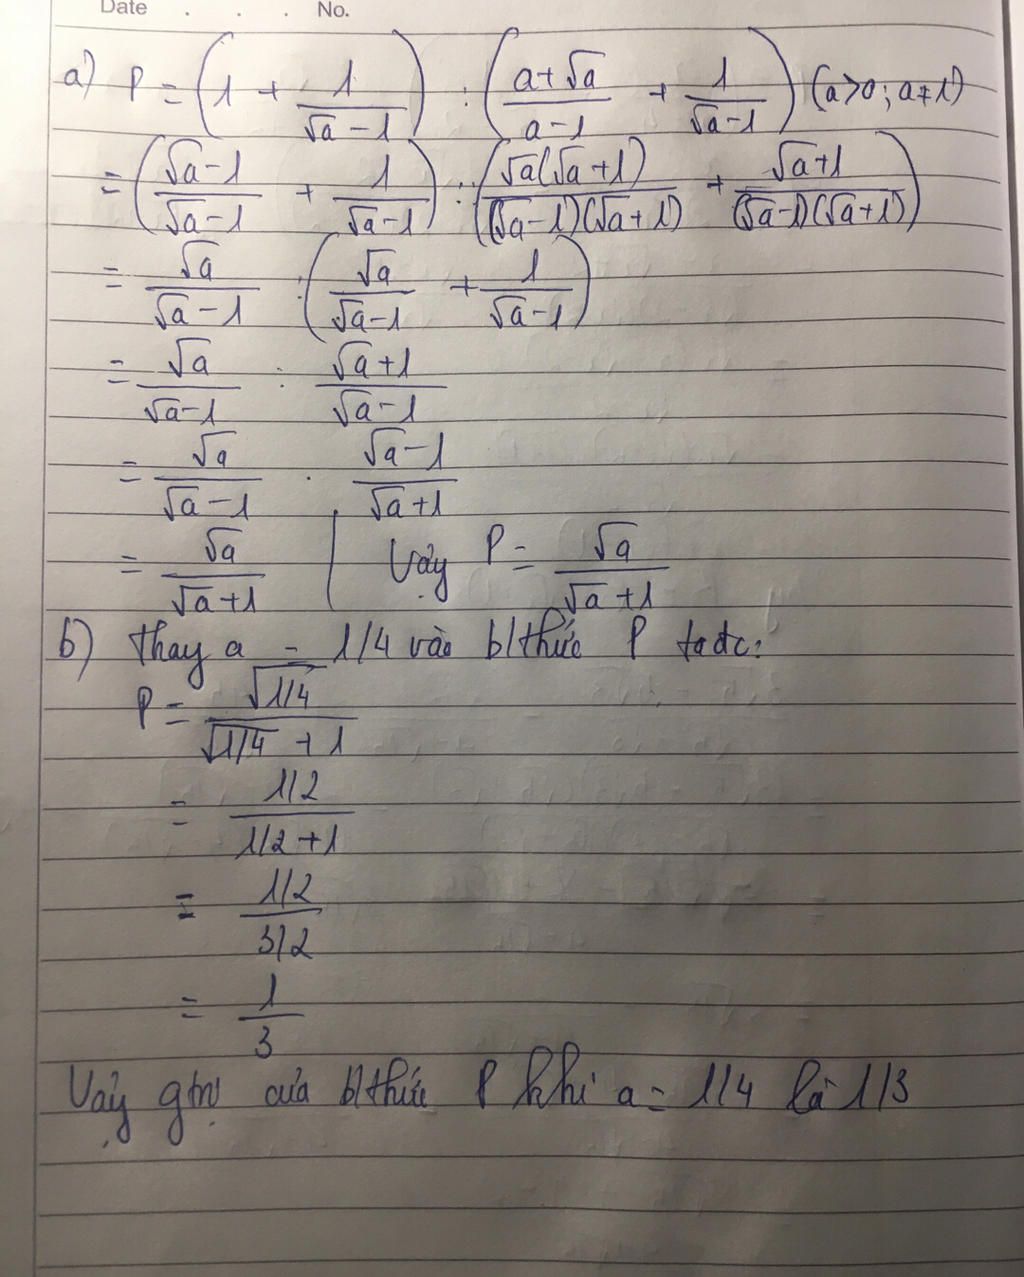 Date . . . No.
a) P = (1 + 1/(√a - 1)) : ((a + √a)/(a - 1) + 1/(√a - 1)) (a > 0; a ≠ 1)
= ((√a - 1)/(√a - 1) + 1/(√a - 1)) : (√a(√a + 1)/((√a - 1)(√a + 1)) + (√a + 1)/((√a - 1)(√a + 1)))
= √a/(√a - 1) : (√a/(√a - 1) + 1/(√a - 1))
= √a/(√a - 1) : (√a + 1)/(√a - 1)
= √a/(√a - 1) . (√a - 1)/(√a + 1)
= √a/(√a + 1) | Vậy P = √a/(√a + 1)
b) thay a = 1/4 vào b/thức P ta đc:
P = √(1/4)/(√(1/4) + 1)
= (1/2)/(1/2 + 1)
= (1/2)/(3/2)
= 1/3
Vậy gtrị của b/thức P khi a = 1/4 là 1/3